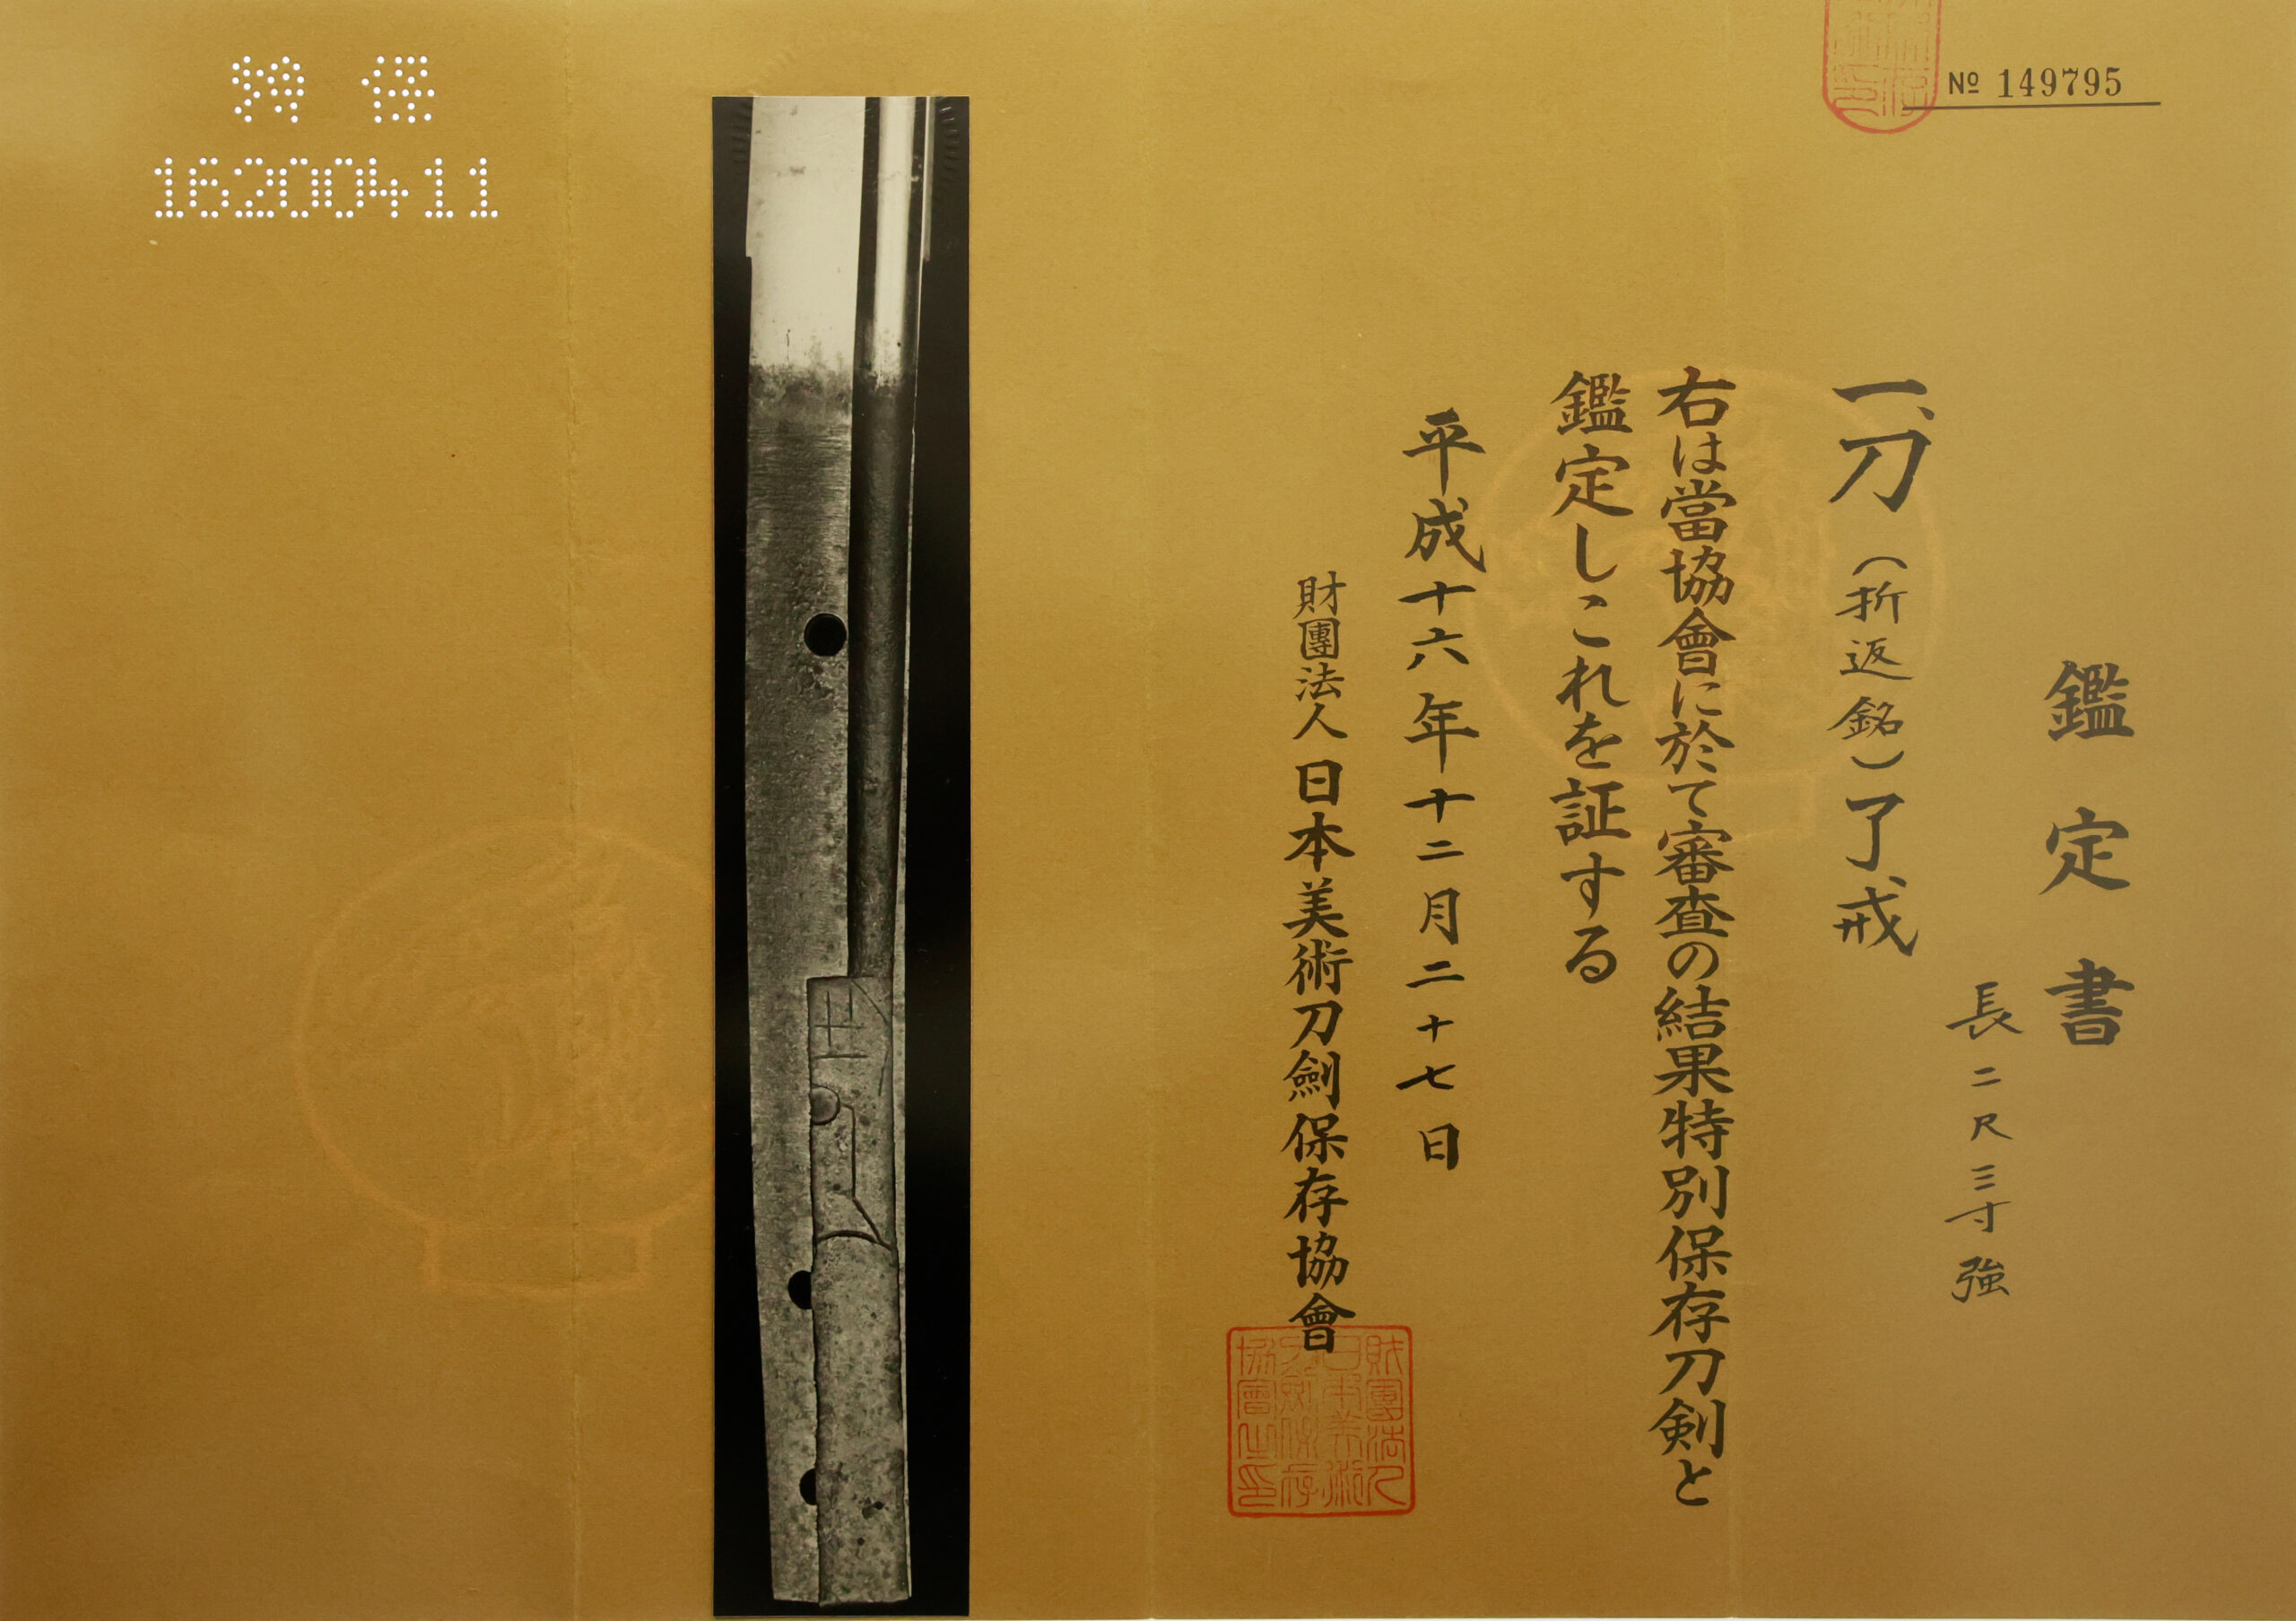 No 149795
鑑定書
長二尺三寸強
一、刀（折返銘）了戒
右は當協會に於て審査の結果特別保存刀剣と
鑑定しこれを証する
平成十六年十二月二十七日
財團法人日本美術刀劍保存協會
財團法人日本美術刀劍保存協會之印
特保
16200411